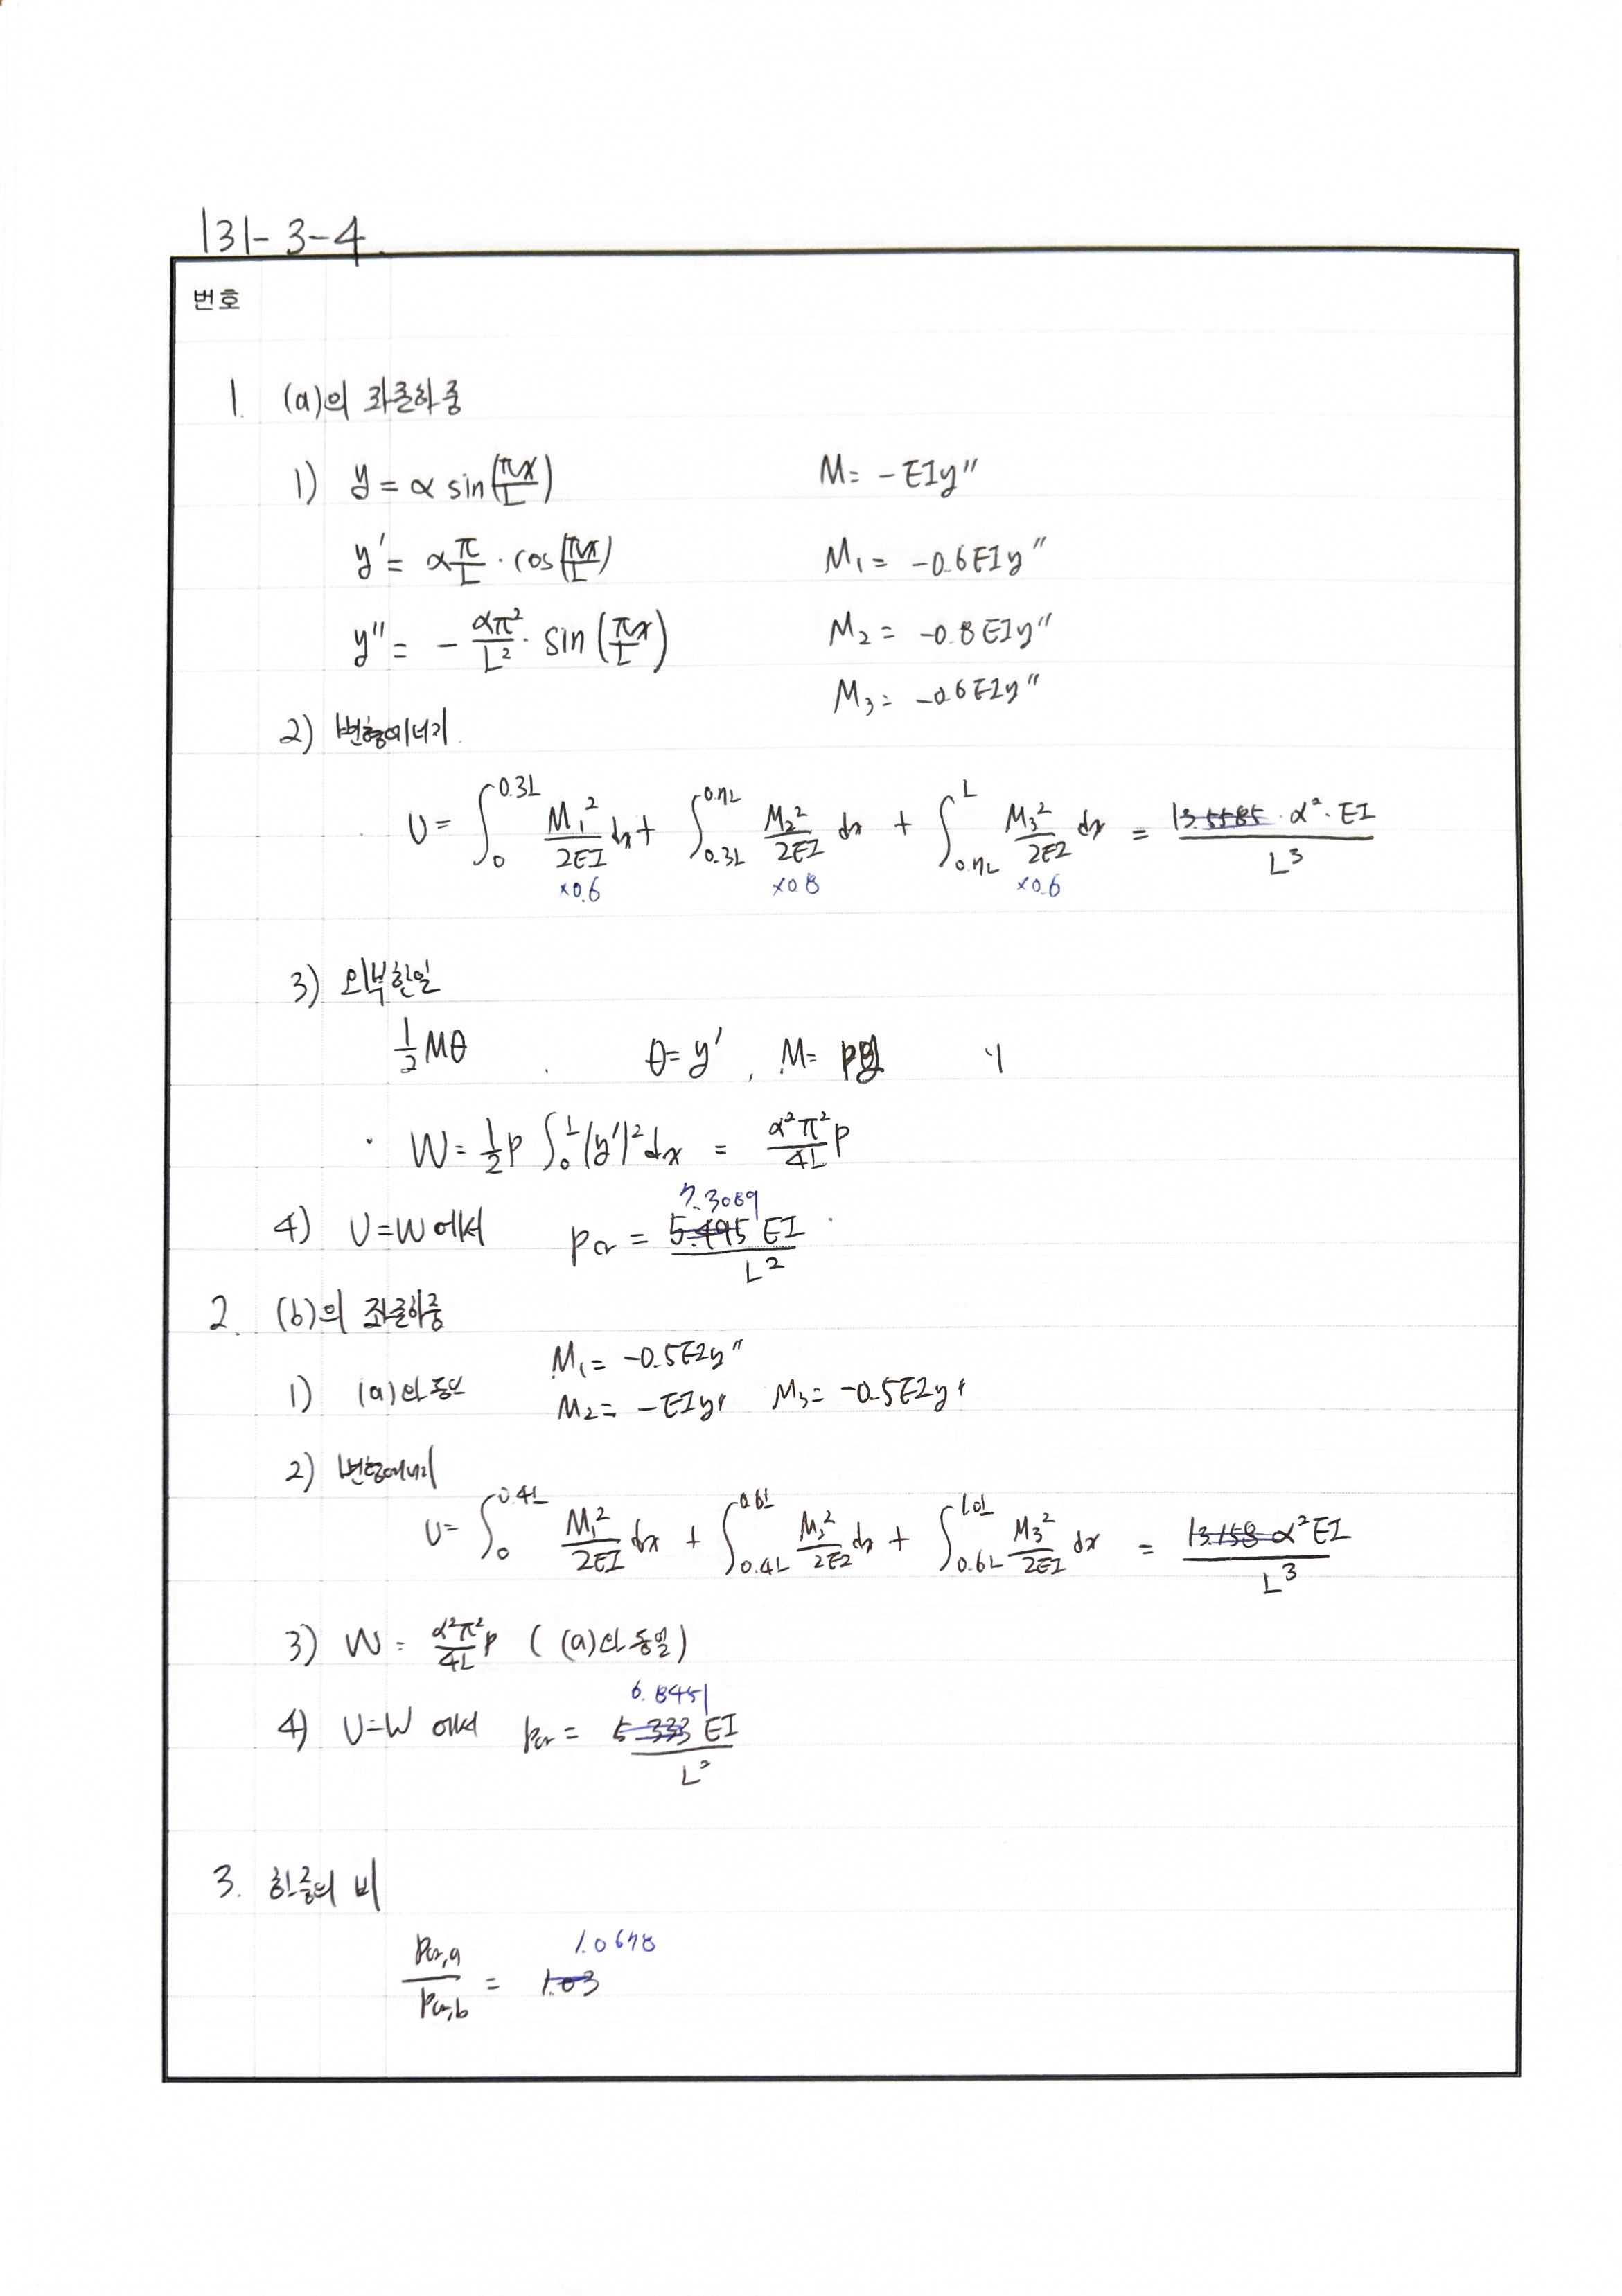 131-3-4.
번호
1. (a)의 좌굴하중
1) y = α sin(πx/L)    M = -EIy''
y' = α π/L · cos(πx/L)    M₁ = -0.6EIy''
y'' = - απ²/L² · sin(πx/L)    M₂ = -0.8EIy''
M₃ = -0.6EIy''
2) 변형에너지
U = ∫₀^0.3L M₁²/2EI dx + ∫0.3L^0.7L M₂²/2EI dx + ∫0.7L^L M₃²/2EI dx = 13.5585 · α² · EI / L³
×0.6    ×0.8    ×0.6
3) 외부한일
½Mθ    θ = y' , M = Py
W = ½P ∫₀^L (y')² dx = α²π²/4L P
7.3089
4) U=W 에서    Pcr = 5.495 EI / L²
2. (b)의 좌굴하중
M₁ = -0.5EIy''
1) (a)와 동일    M₂ = -EIy''    M₃ = -0.5EIy''
2) 변형에너지
U = ∫₀^0.4L M₁²/2EI dx + ∫0.4L^0.6L M₂²/2EI dx + ∫0.6L^1.0L M₃²/2EI dx = 13.158 α²EI / L³
3) W = α²π²/4L P ( (a)와 동일)
6.8451
4) U=W 에서    Pcr = 5.333 EI / L²
3. 하중의 비
1.0678
Pcr,a / Pcr,b = 1.03